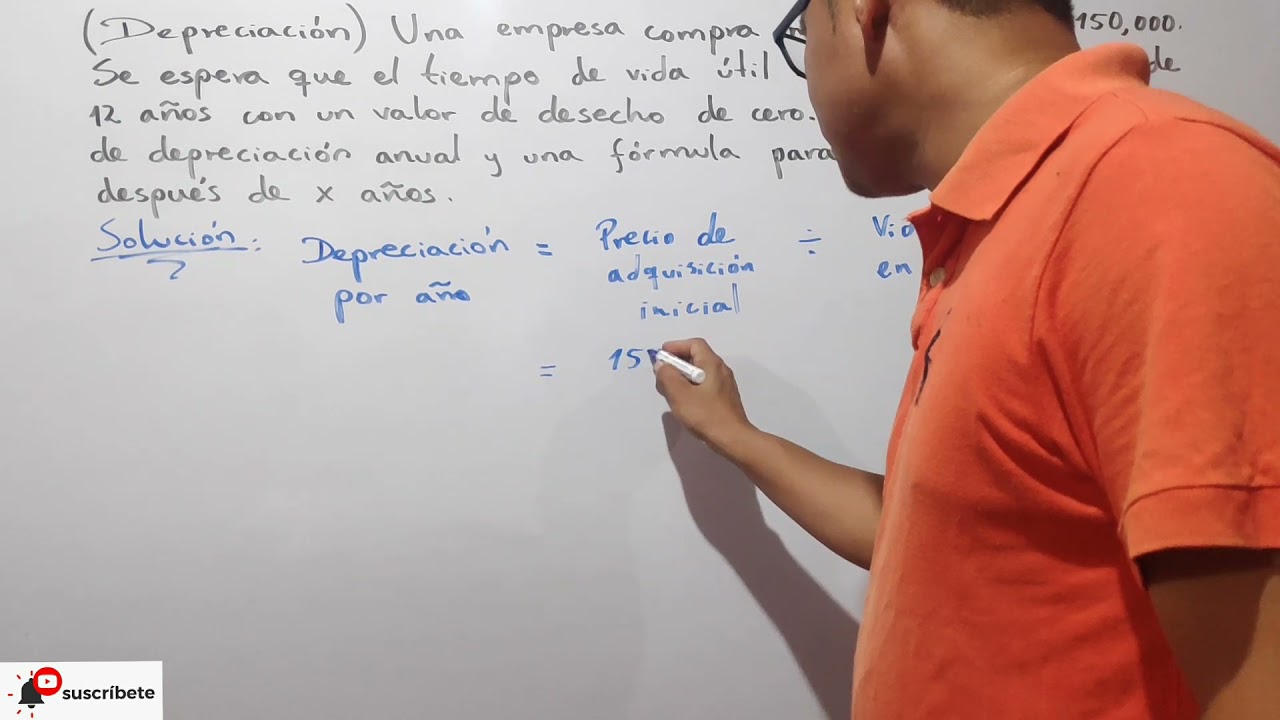 (Depreciación) Una empresa compra 150,000.
Se espera que el tiempo de vida útil de
12 años con un valor de desecho de cero.
de depreciación anual y una fórmula para
después de x años.
Solución: Depreciación = Precio de ÷
por año adquisición en
inicial
= 15
suscríbete